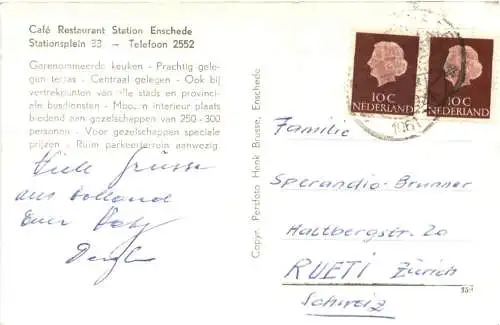 Café Restaurant Station Enschede
Stationsplein 33 - Telefoon 2552
Gerenommeerde keuken - Prachtig gele-
gen terras - Centraal gelegen - Ook bij
vertrekpunten van alle stads en provinci-
ale busdiensten - Modern interieur plaats
biedend aan gezelschappen van 250-300
personen - Voor gezelschappen speciale
prijzen - Ruim parkeerterrein aanwezig.
Viele Grüsse
aus Holland
Euer
Copyr. Persfoto Henk Brusse, Enschede
10 C
NEDERLAND
10 C
NEDERLAND
Familie
Sperandio-Brunner
Haltbergstr. 20
RUETI Zürich
Schweiz